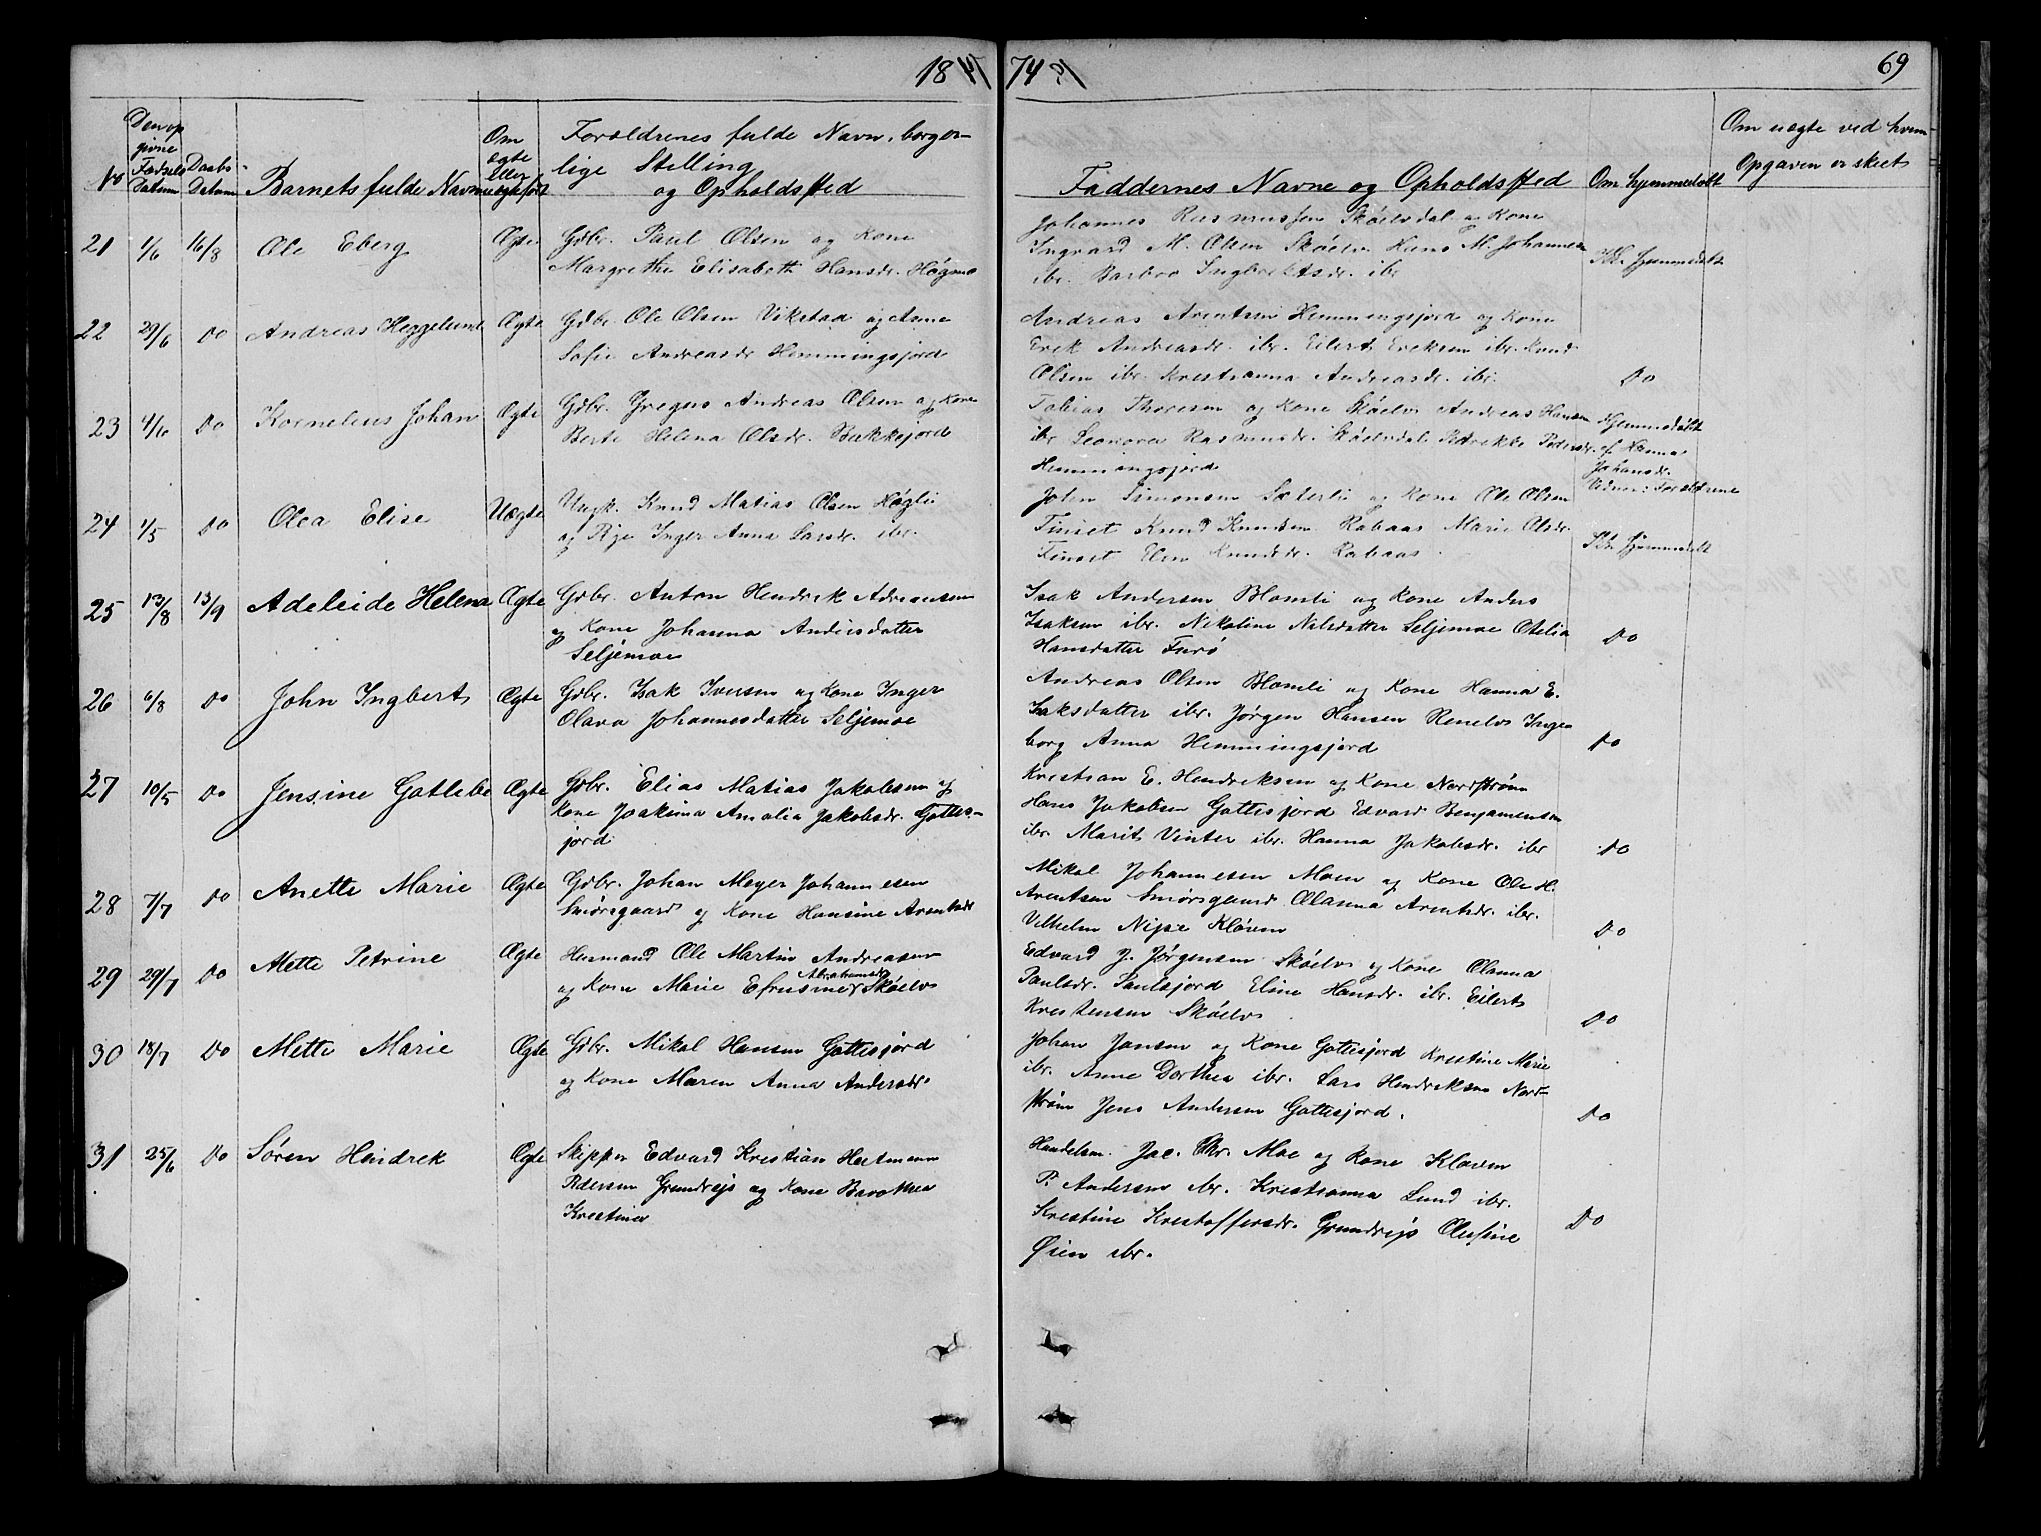 18
74
69
No
Den op
givne
Fødsels
Datum
Daabs-
Datum
Barnets fulde Navn
Om
ægte
eller
uægtefødt
Forældrenes fulde Navn, borger-
lige Stilling
og Opholdssted
Faddernes Navne og Opholdssted
Om hjemmedøbt
Om uægte ved hvem
Opgaven er skeet
21 1/6 16/8 Ole Eberg Ægte
Gdbr. Paul Olsen og Kone
Margrethe Elisabeth Hansdr. Høgmo
Johannes Rasmussen Skøelvdal og Kone
Ingvard M. Olsen Skøelv Hans M. Johannesen
ibr. Barbro Ingbrektsdr. ibr
Ikke hjemmedøbt
22 29/6 Do Andreas Heggelund Ægte
Gdbr. Ole Olsen Vikstad og Anne
Sofie Andreasdr Hemmingsjord
Andreas Arentsen Hemmingsjord og Kone
Erek Andreasdr. ibr. Eilert Ereksen ibr. Knud
Olsen ibr. Krestianna Andreasdr. ibr.
Do
23 4/6 Do Kornelius Johan Ægte
Gdbr. Gregus Andreas Olsen og Kone
Berte Helena Olsdr. Bakkejord
Tobias Thoresen og Kone Skøelv Andreas Hansen
ibr Leonora Rasmusdr. Skøelvdal Petrekke Pedersdr.
Hemmingsjord
Hjemmedøbt
af Hanna
Johansdr.
Vidner: Forældrene
24 1/5 Do Olea Elise Uægte
Ungk. Knud Matias Olsen Høgli
og Pige Inger Anna Larsdr. ibr.
John Simonsen Sæterli og Kone Ole Olsen
Finset Knud Knudsen Rabaas Marie Olsdr.
Finset Elen Knudsdr. Rabaas.
Ikke hjemmedøbt
25 13/8 13/9 Adeleide Helena Ægte
Gdbr. Anton Hendrek Adreansen
og Kone Johanna Andersdatter
Seljemoe
Isak Andersen Blomli og Kone Anders
Isaksen ibr. Nekoline Nilsdatter Seljemoe Otelia
Hansdatter Furø
Do
26 6/8 Do John Ingbert Ægte
Gdbr. Isak Iversen og Kone Inger
Olava Johannesdatter Seljemoe
Andreas Olsen Blomli og Kone Hanna E.
Isaksdatter ibr. Jørgen Hansen Renelv Inge
borg Anna Hemmingsjord
Do
27 10/5 Do Jensine Gotlibe Ægte
Gdbr. Elias Matias Jakobsen og
Kone Joakima Amalia Jakobsdr. Gottes-
jord
Krestian E. Hendriksen og Kone Nordstrøm
Hans Jakobsen Gottesjord Edvard Benjamensen
ibr. Marit Vinter ibr. Hanna Jakobsdr. ibr
Do
28 7/7 Do Anette Marie Ægte
Gdbr. Johan Meyer Johannesen
Smørsgaard og Kone Hansine Arentsdr
Mikal Johannesen Moen og Kone Ole H.
Arentsen Smørsgaard Olanna Arentsdr. ibr.
Vilhelm Nipe Kløven
Do
29 29/7 Do Mette Petrine Ægte
Husmand Ole Martin Andreasen
Abrahamsdr
og Kone Marie Efrusine Skøelv
Edvard J. Jørgensen Skøelv og Kone Olanna
Paulsdr. Paulsjord Eline Hansdr. ibr. Eilert
Krestensen Skøelv
Do
30 18/7 Do Mette Marie Ægte
Gdbr. Mikal Hansen Gottesjord
og Kone Maren Anna Andersdr.
Johan Jansen og Kone Gottesjord Krestine Marie
ibr. Anne Dorthea ibr. Lars Hendreksen Nord-
strøm Jens Andersen Gottesjord.
Do
31 25/6 Do Søren Hendrek Ægte
Skipper Edvard Kristian Hartmann
Pedersen Grundrejs og Kone Barothea
Krestine
Handelsm. Jac. Chr. Moe og Kone Kløven
P. Andersen ibr. Krestianna Lund ibr.
Krestine Krestoffersdr. Grundrejs Olufine
Øien ibr.
Do